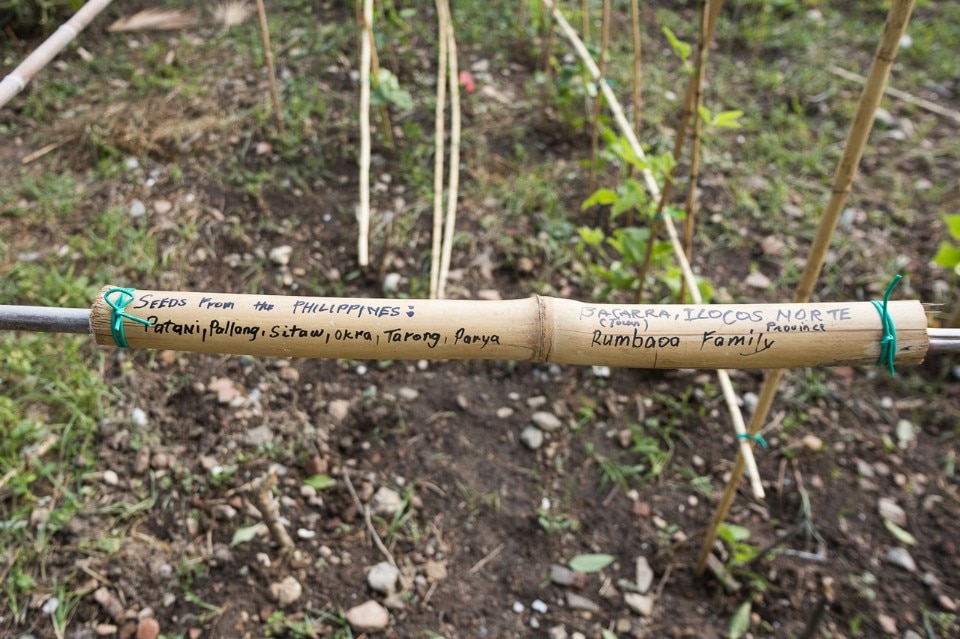 SEEDS From the PHILIPPINES:
Patani, Pallang, Sitaw, okra, Tarong, Parya
BACARRA, ILOCOS NORTE
(Town) Province
Rumbaoa Family